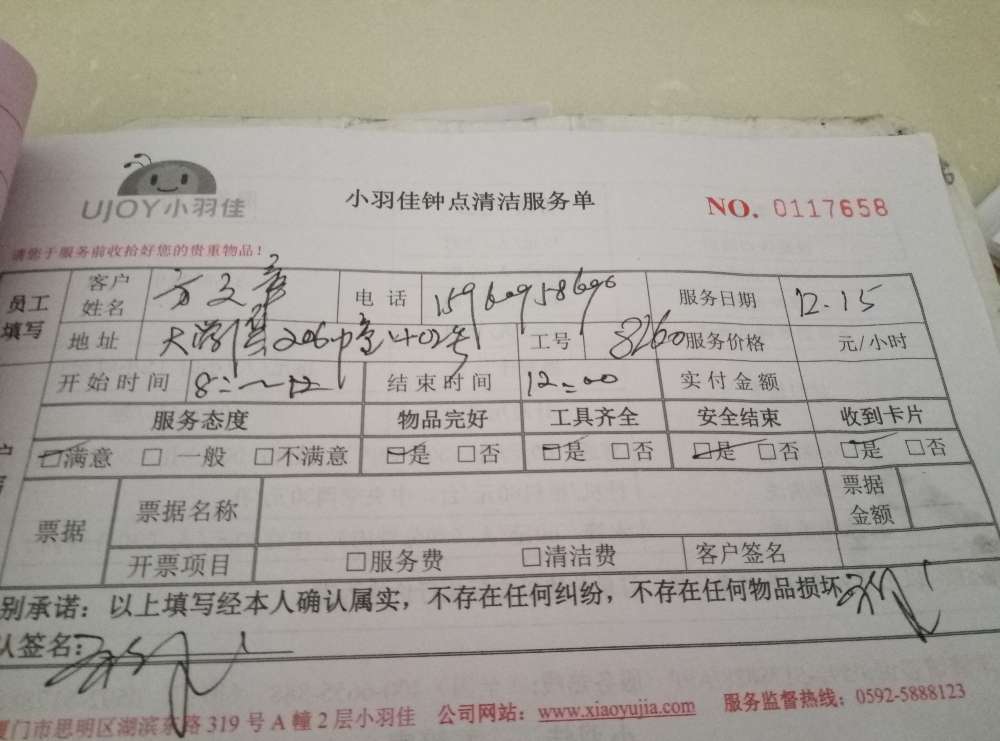 UJOY小羽佳
小羽佳钟点清洁服务单
NO. 0117658
请您于服务前收拾好您的贵重物品!
员工填写 客户姓名 方文彦 电话 服务日期 12.15
地址 402号 工号 8260 服务价格 元/小时
开始时间 结束时间 12:00 实付金额
服务态度 物品完好 工具齐全 安全结束 收到卡片
☑满意 □一般 □不满意 ☑是 □否 ☑是 □否 ☑是 □否 ☑是 □否
票据 票据名称 票据金额
开票项目 □服务费 □清洁费 客户签名
别承诺:以上填写经本人确认属实,不存在任何纠纷,不存在任何物品损坏
认签名:
厦门市思明区湖滨东路319号A幢2层小羽佳 公司网站:www.xiaoyujia.com 服务监督热线:0592-5888123